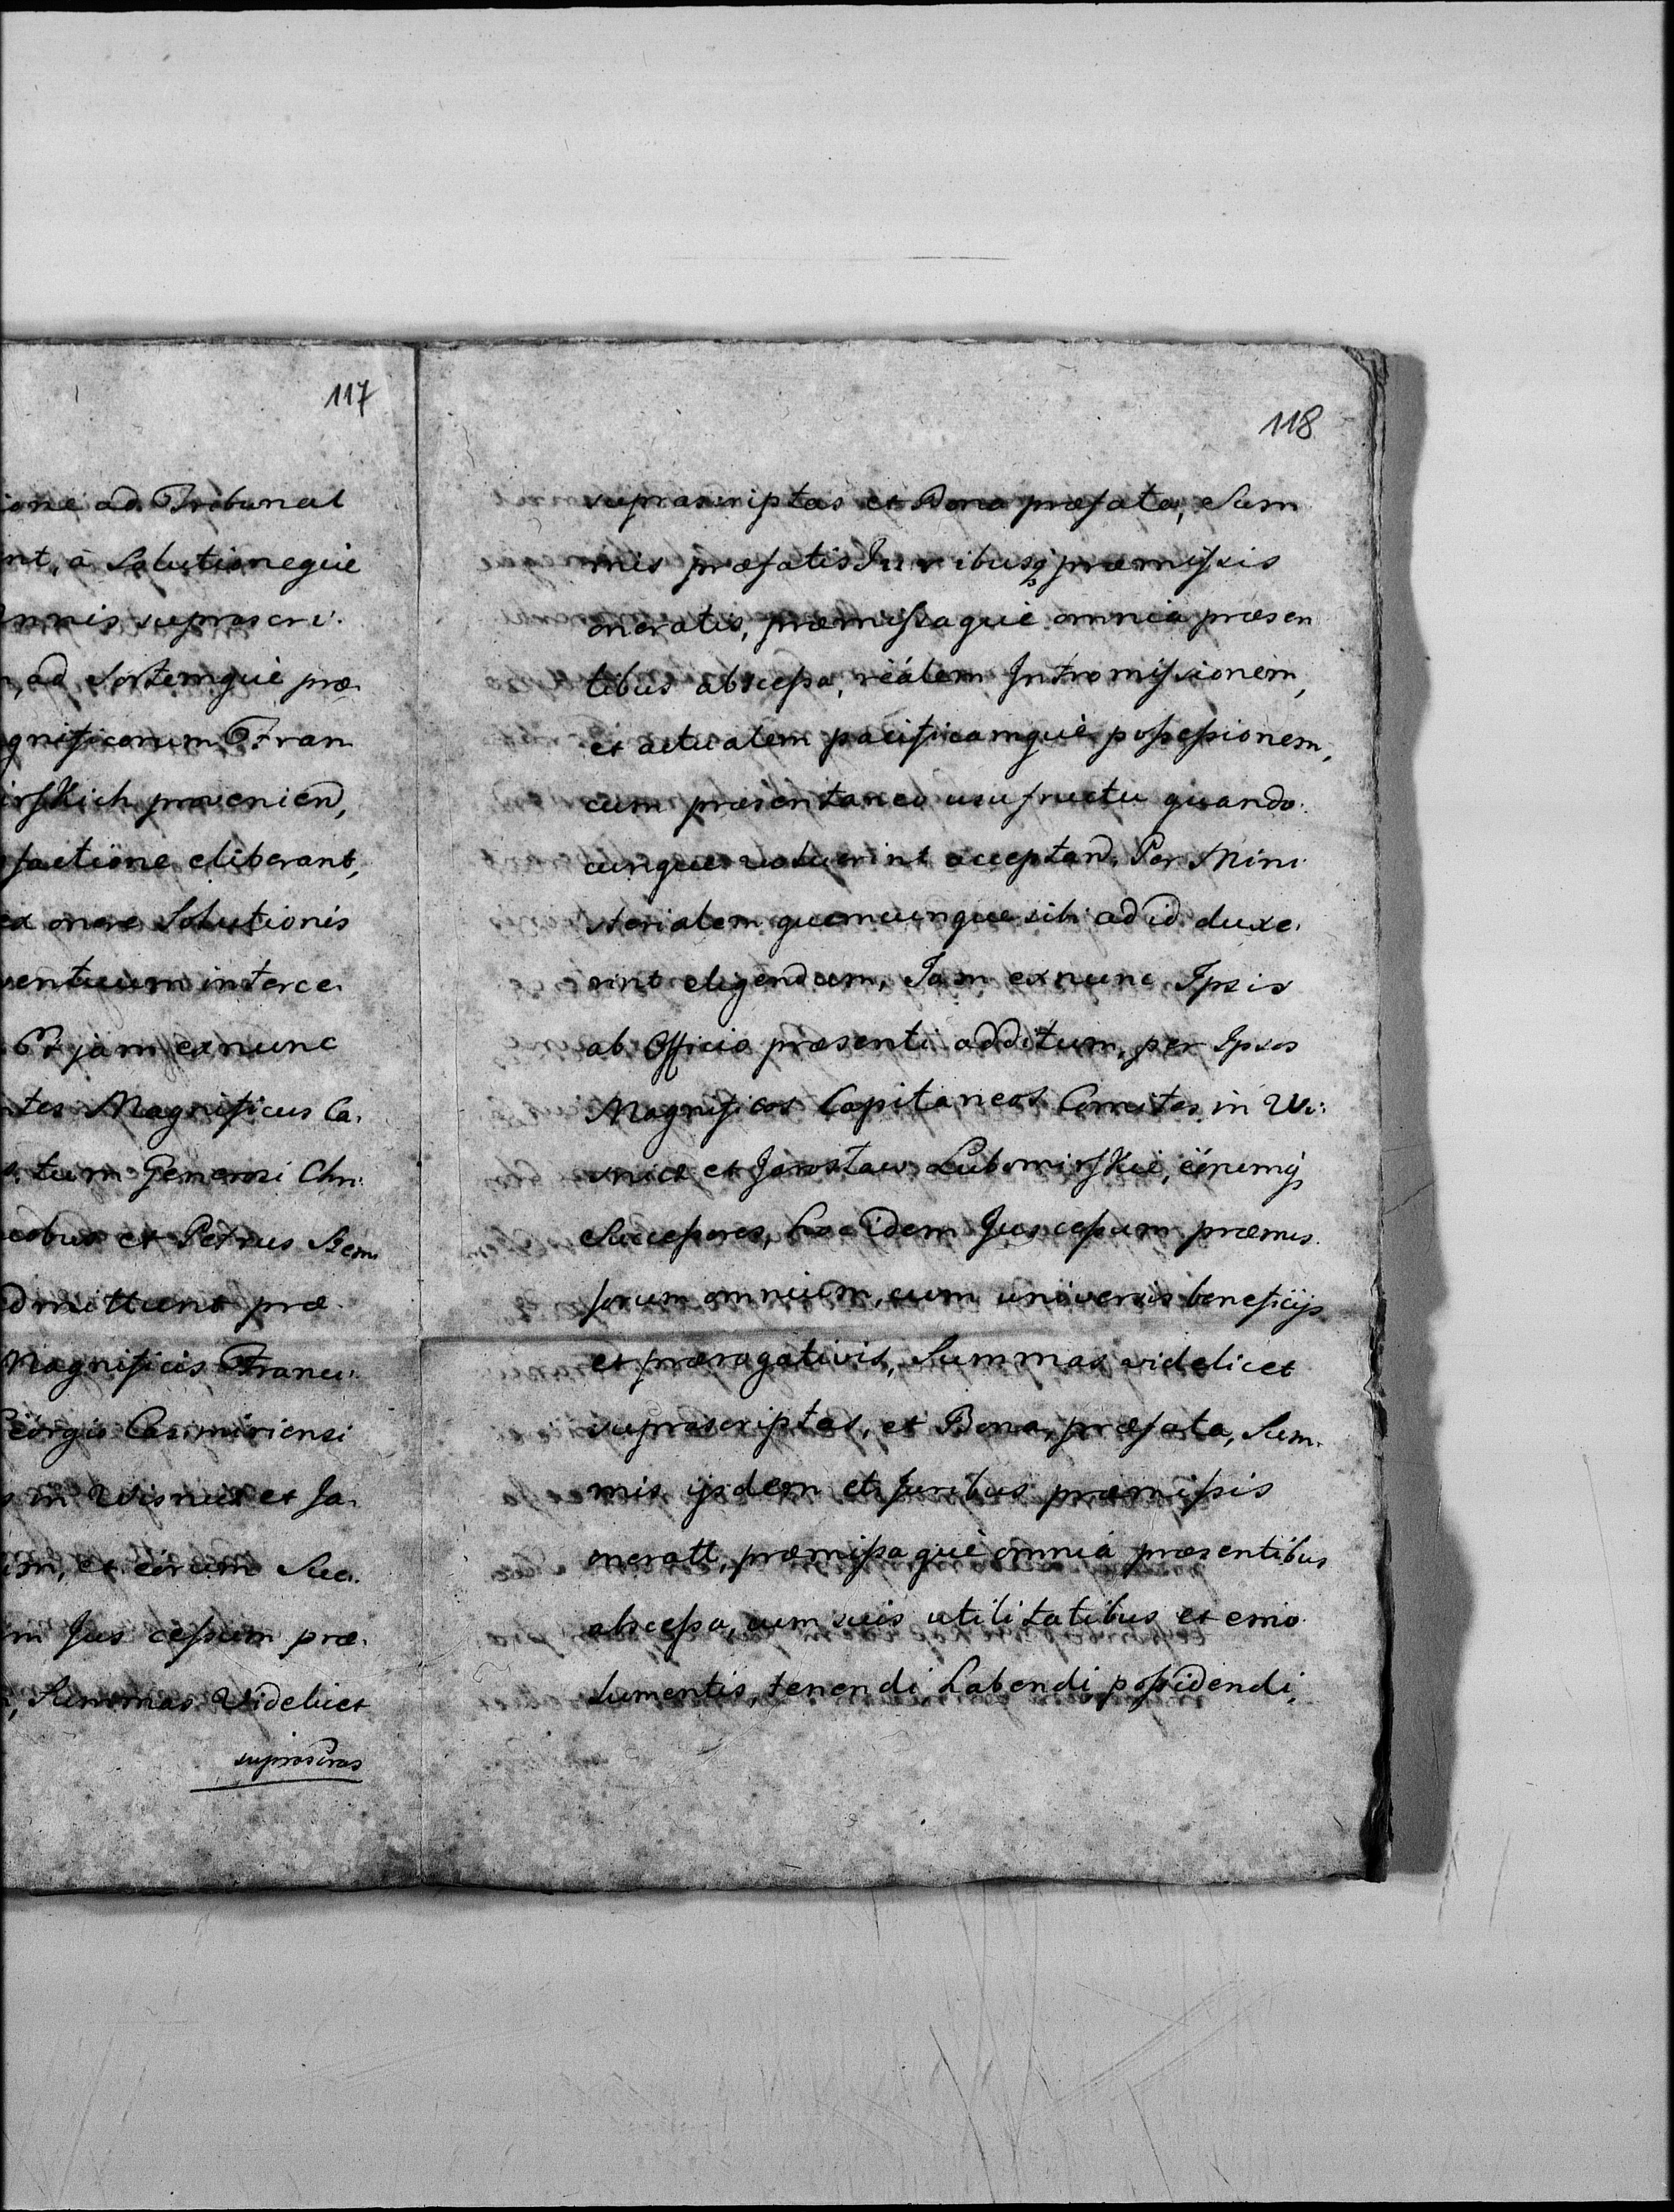 117
ione ad Tribunal
nt, à Solutioneque
Annis suprascri:
, ad Sortemque præ
gnificorum Fran
irskich provenien,
factione eliberant,
ex onere Solutionis
ventuum interce
Et jam exnunc
tes Magnificus Ca:
tum Generosi Chri:
cobus et Petrus
dmittunt præ
Magnificis Franci:
Georgio Casimiriensi
s in Wisnicz et Ja:
et eorum Suc:
m Jus cessum præ:
, Summas Videlicet
suprascras
118
suprascriptas et Bona præfata, Sum
mis præfatis Juribusq præmissis
oneratis, præmissaque omnia præsen
tibus abscessa, reálem Intromissionem,
et actualem pacificamque possessionem,
cum præsentaneo usufructu quando:
cunque voluerint acceptand, Per Mini
sterialem quemcunque sibi ad id duxe:
rint eligendum, Jam exnunc Ipsis
ab Officio præsenti additum, per Ipsos
Magnificos Capitaneos Comites in Wi:
snicz et Jarosław Lubomirskie, eorumq
Successores, hocidem Jus cessum præmis:
sorum omnium, cum universis beneficijs
et prærogativis, Summas videlicet
suprascriptas, et Bona præfata, Sum:
mis ijsdem et Juribus præmissis
oneratt, præmissaque omnia præsentibus
abscessa, cum suis utilitatibus et emo
lumentis, tenendi habendi possidendi,